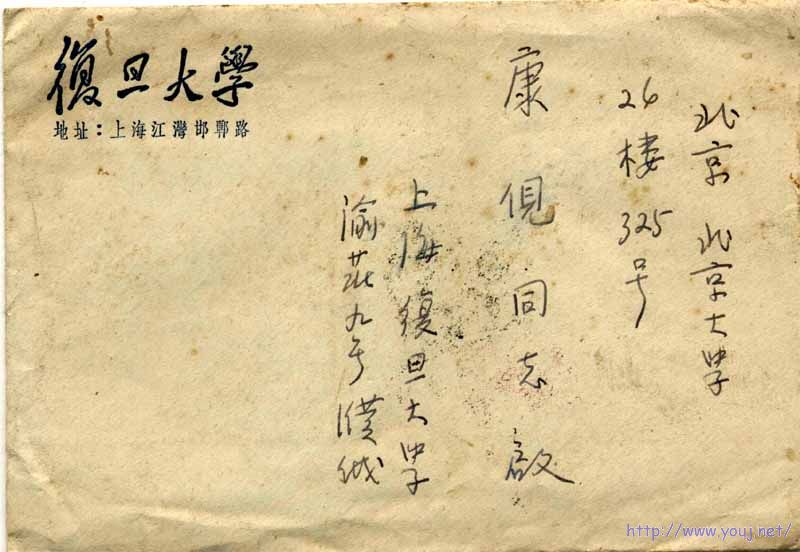 復旦大學
地址：上海江灣邯鄲路
北京 北京大学
26楼 325号
康俔同志啟
上海復旦大学
渝莊九号 濮
http://www.youj.net/